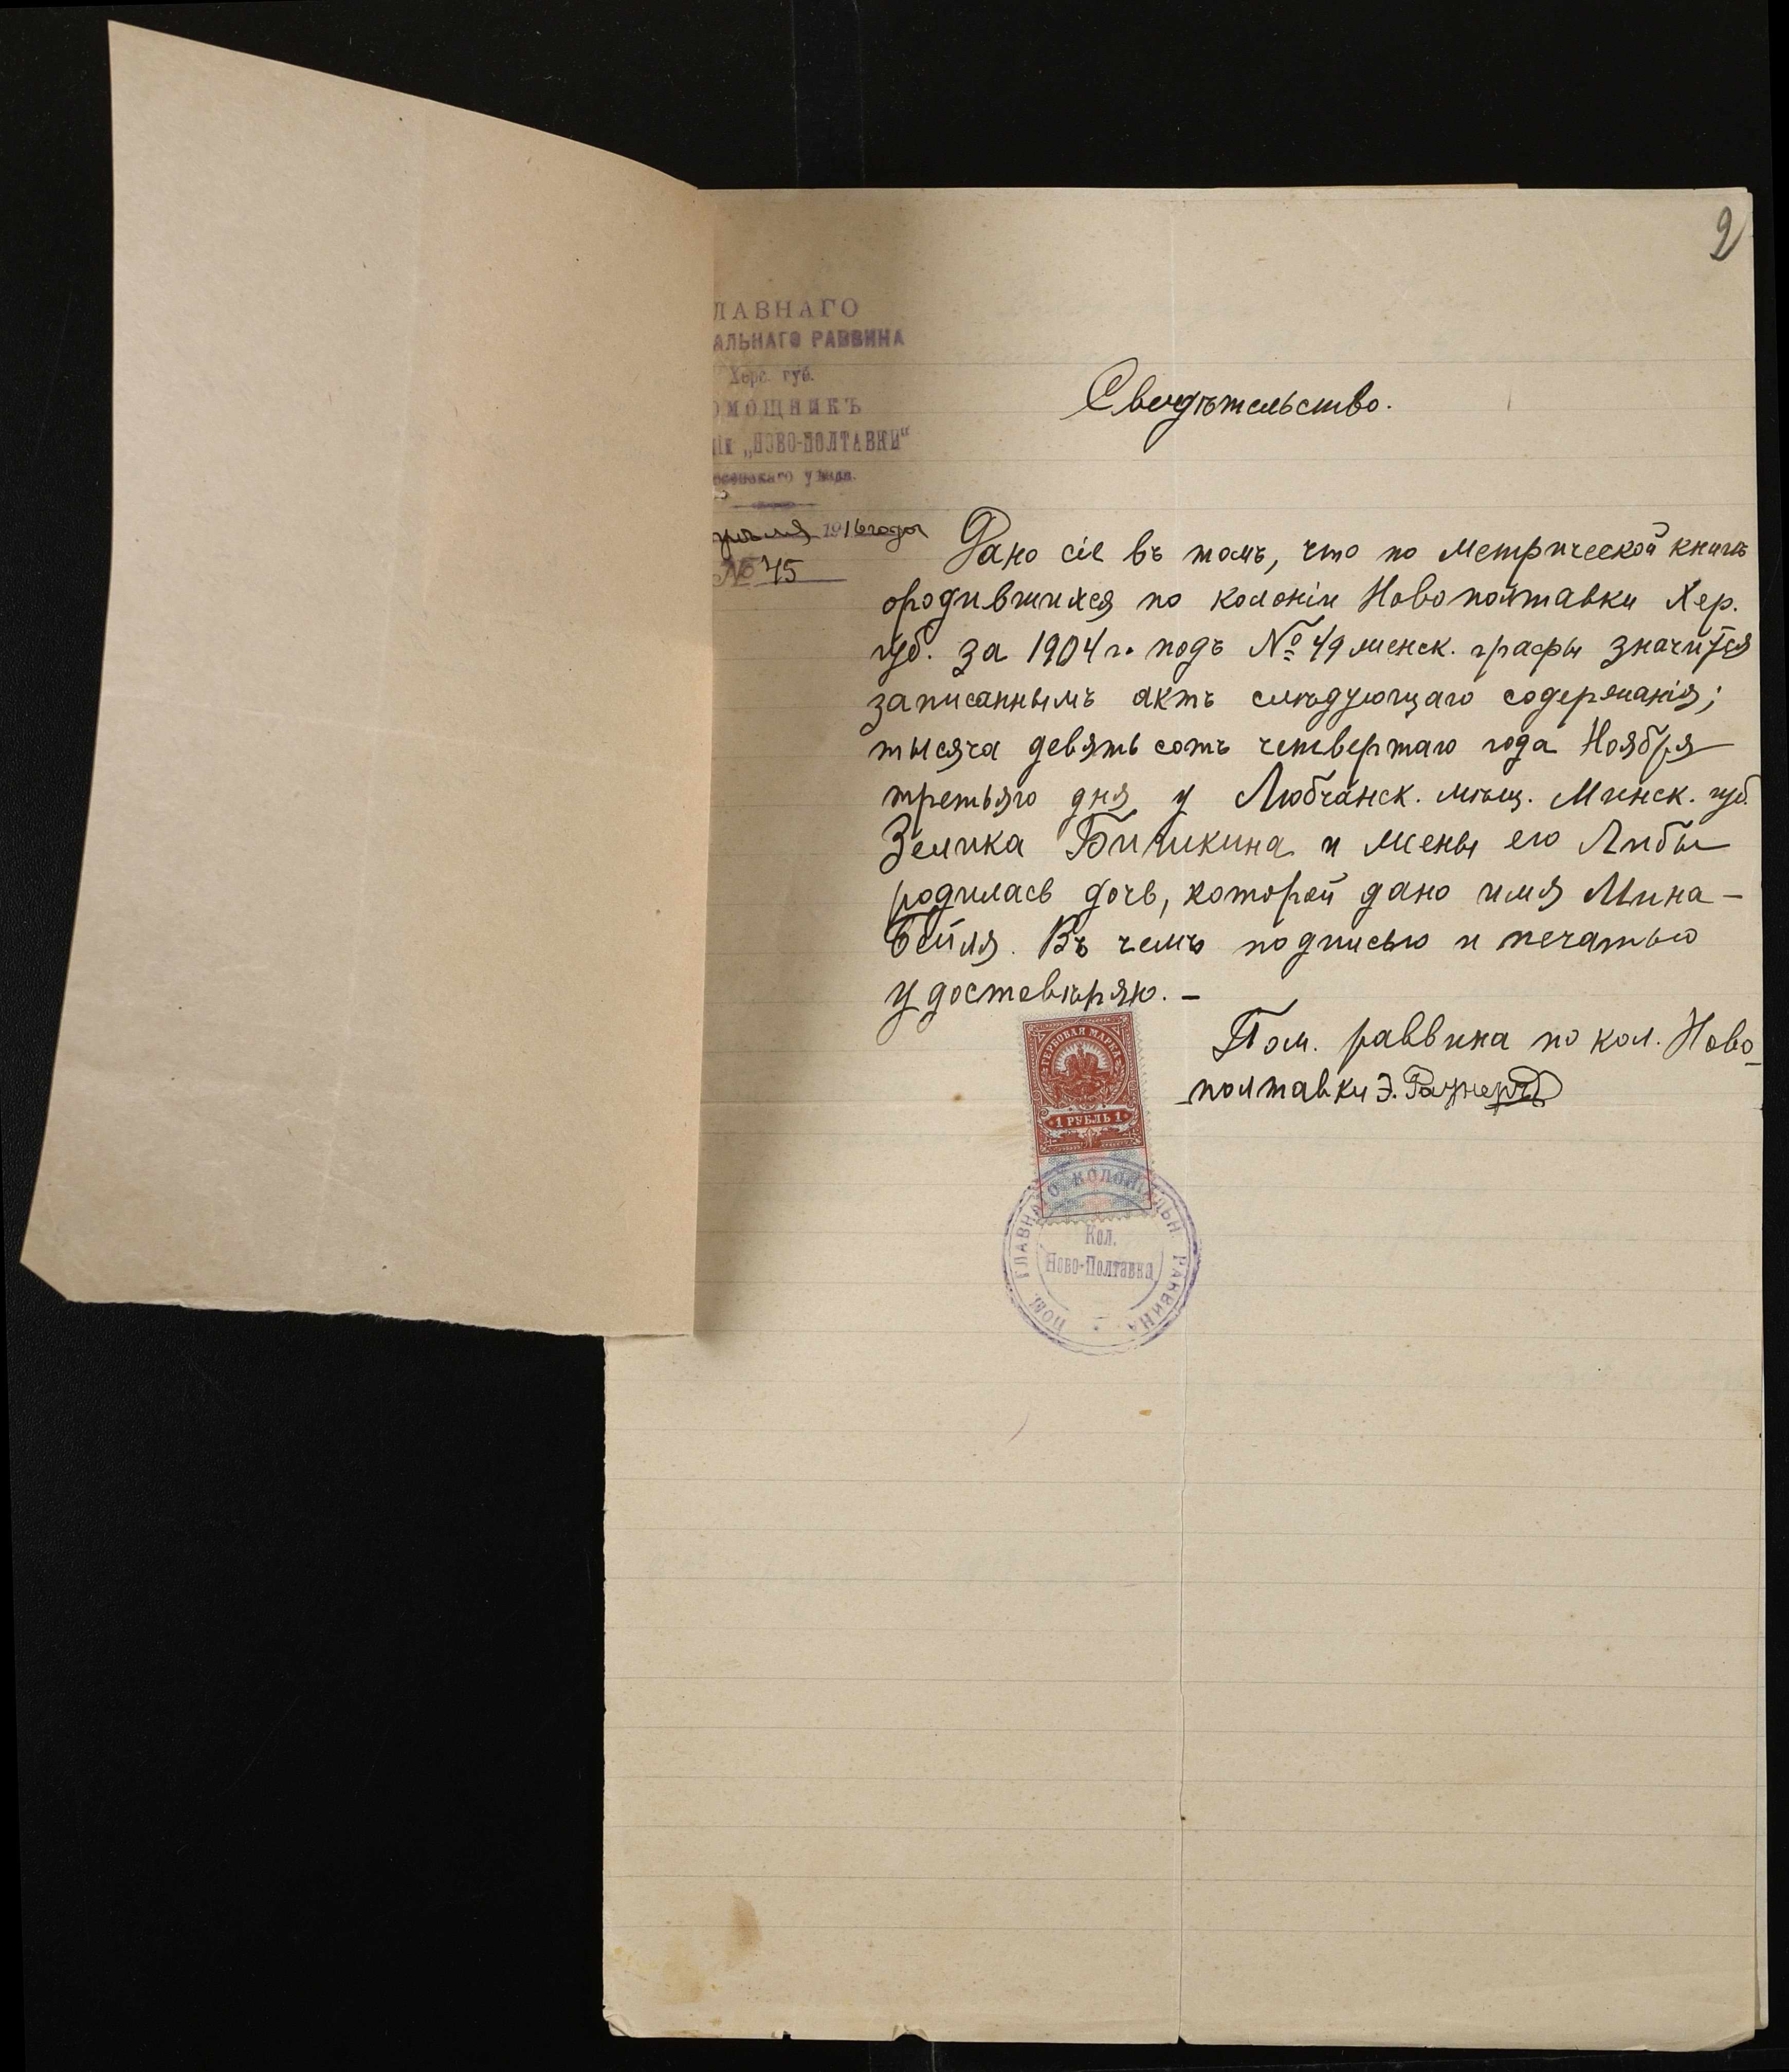 2
ЛАВНАГО
АЛЬНАГО РАВВИНА
Херс. губ.
ОМОЩНИКЪ
ніи „НОВО-ПОЛТАВКИ“
рсонскаго уѣзда.
1916 года
№ 45
Свидѣтельство.
Дано сіе въ томъ, что по метрической книгѣ
ородившихся по колоніи Новополтавки Хер.
губ. за 1904 г. подъ № 49 женск. графы значится
записаннымъ актъ слѣдующаго содержанія;
тысяча девять сотъ четвертаго года Ноября
третьяго дня у Любчанск. мѣщ. Минск. губ.
Зелика и жены его Либы
родилась дочь, которой дано имя Мина-
Бейля. Въ чемъ подписью и печатью
удостовѣряю. –
Пом. раввина по кол. Ново-
полтавки Э.
ГЕРБОВАЯ МАРКА
1 РУБЛЬ 1
ПОМ. ГЛАВНАГО КОЛОНІАЛЬН. РАВВИНА
Кол.
Ново-Полтавка